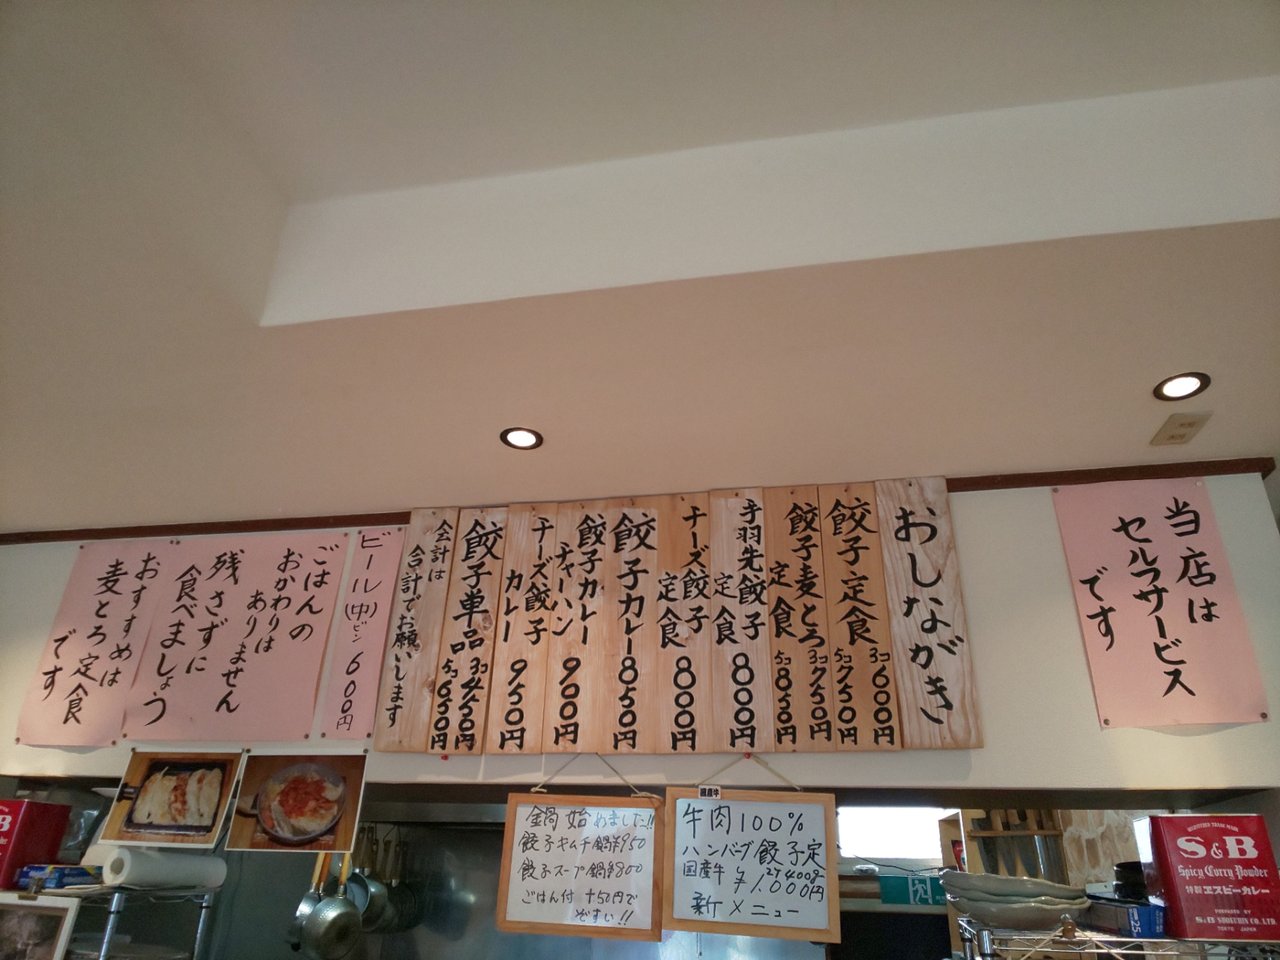 当店は
セルフサービス
です
おしながき
餃子定食
3コ600円
5コ750円
餃子麦とろ
定食
3コ750円
5コ850円
手羽先餃子
定食
800円
チーズ餃子
定食
800円
餃子カレー
850円
餃子カレー
チャーハン
900円
チーズ餃子
カレー
950円
餃子単品
3コ450円
5コ650円
会計は
合計でお願いします
ビール(中)ビン 600円
ごはんの
おかわりは
ありません
残さずに
食べましょう
おすすめは
麦とろ定食
です
国産牛
牛肉100%
ハンバーグ餃子定
国産牛
¥1.000円
新メニュー
鍋始めました!!
餃子キムチ鍋¥950
餃子スープ鍋¥800
ごはん付 +50円で
ぞすい!!
REGISTERED TRADE MARK
S&B
Spicy Curry Powder
特製ヱスビーカレー
PREPARED BY
S&B SHOKUHIN CO.,LTD.
TOKYO JAPAN
25